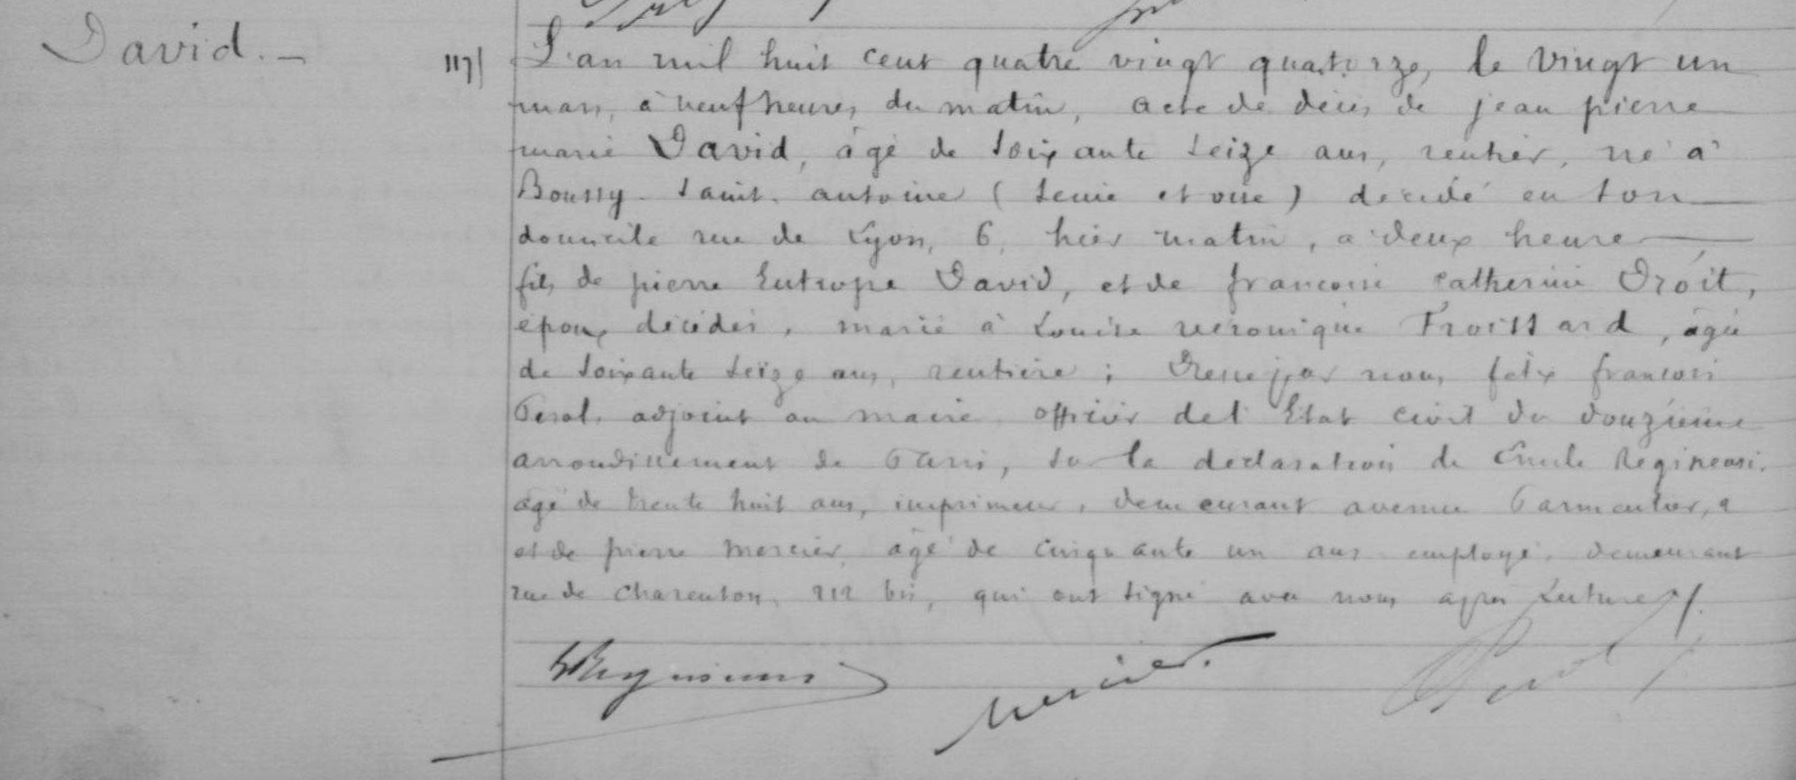 David. -
1171
L'an mil huit cent quatre vingt quatorze, le vingt un
mars, à neuf heures du matin, acte de décès de jean pierre
marie David, âgé de soixante seize ans, rentier, né à
Boussy - saint - antoine (seine et oise) décédé en son
domicile rue de Lyon, 6, hier matin, à deux heures
fils de pierre Eutrope David, et de françoise catherine Droit,
époux décédés, marié à Louise veronique Froissard, âgée
de soixante seize ans, rentière ; Dressé par nous, félix françois
adjoint au maire, officier de l'Etat civil du douzième
arrondissement de Paris, sur la déclaration de Emile
âgé de trente huit ans, imprimeur, demeurant avenue Parmentier, 9
et de pierre mercier, âgé de cinquante un ans employé, demeurant
rue de charenton, 212 bis, qui ont signé avec nous après Lecture
mercier.